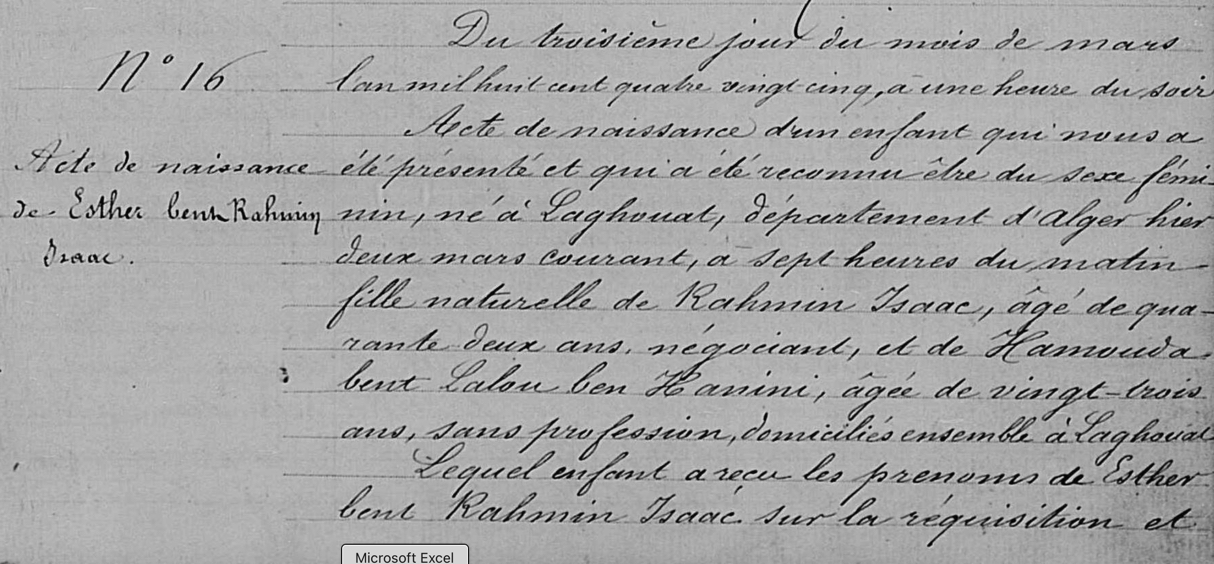 N° 16
Acte de naissance
de Esther bent Rahmin
Isaac.
Du troisième jour du mois de mars
l'an mil huit cent quatre vingt-cinq, à une heure du soir
Acte de naissance d'un enfant qui nous a
été présenté et qui a été reconnu être du sexe fémi-
nin, né à Laghouat, département d'Alger hier
deux mars courant, à sept heures du matin
fille naturelle de Rahmin Isaac, âgé de qua-
rante deux ans, négociant, et de Hamouda
bent Lalou ben Hanini, âgée de vingt-trois
ans, sans profession, domiciliés ensemble à Laghouat
Lequel enfant a reçu les prenoms de Esther
bent Rahmin Isaac sur la réquisition et
Microsoft Excel